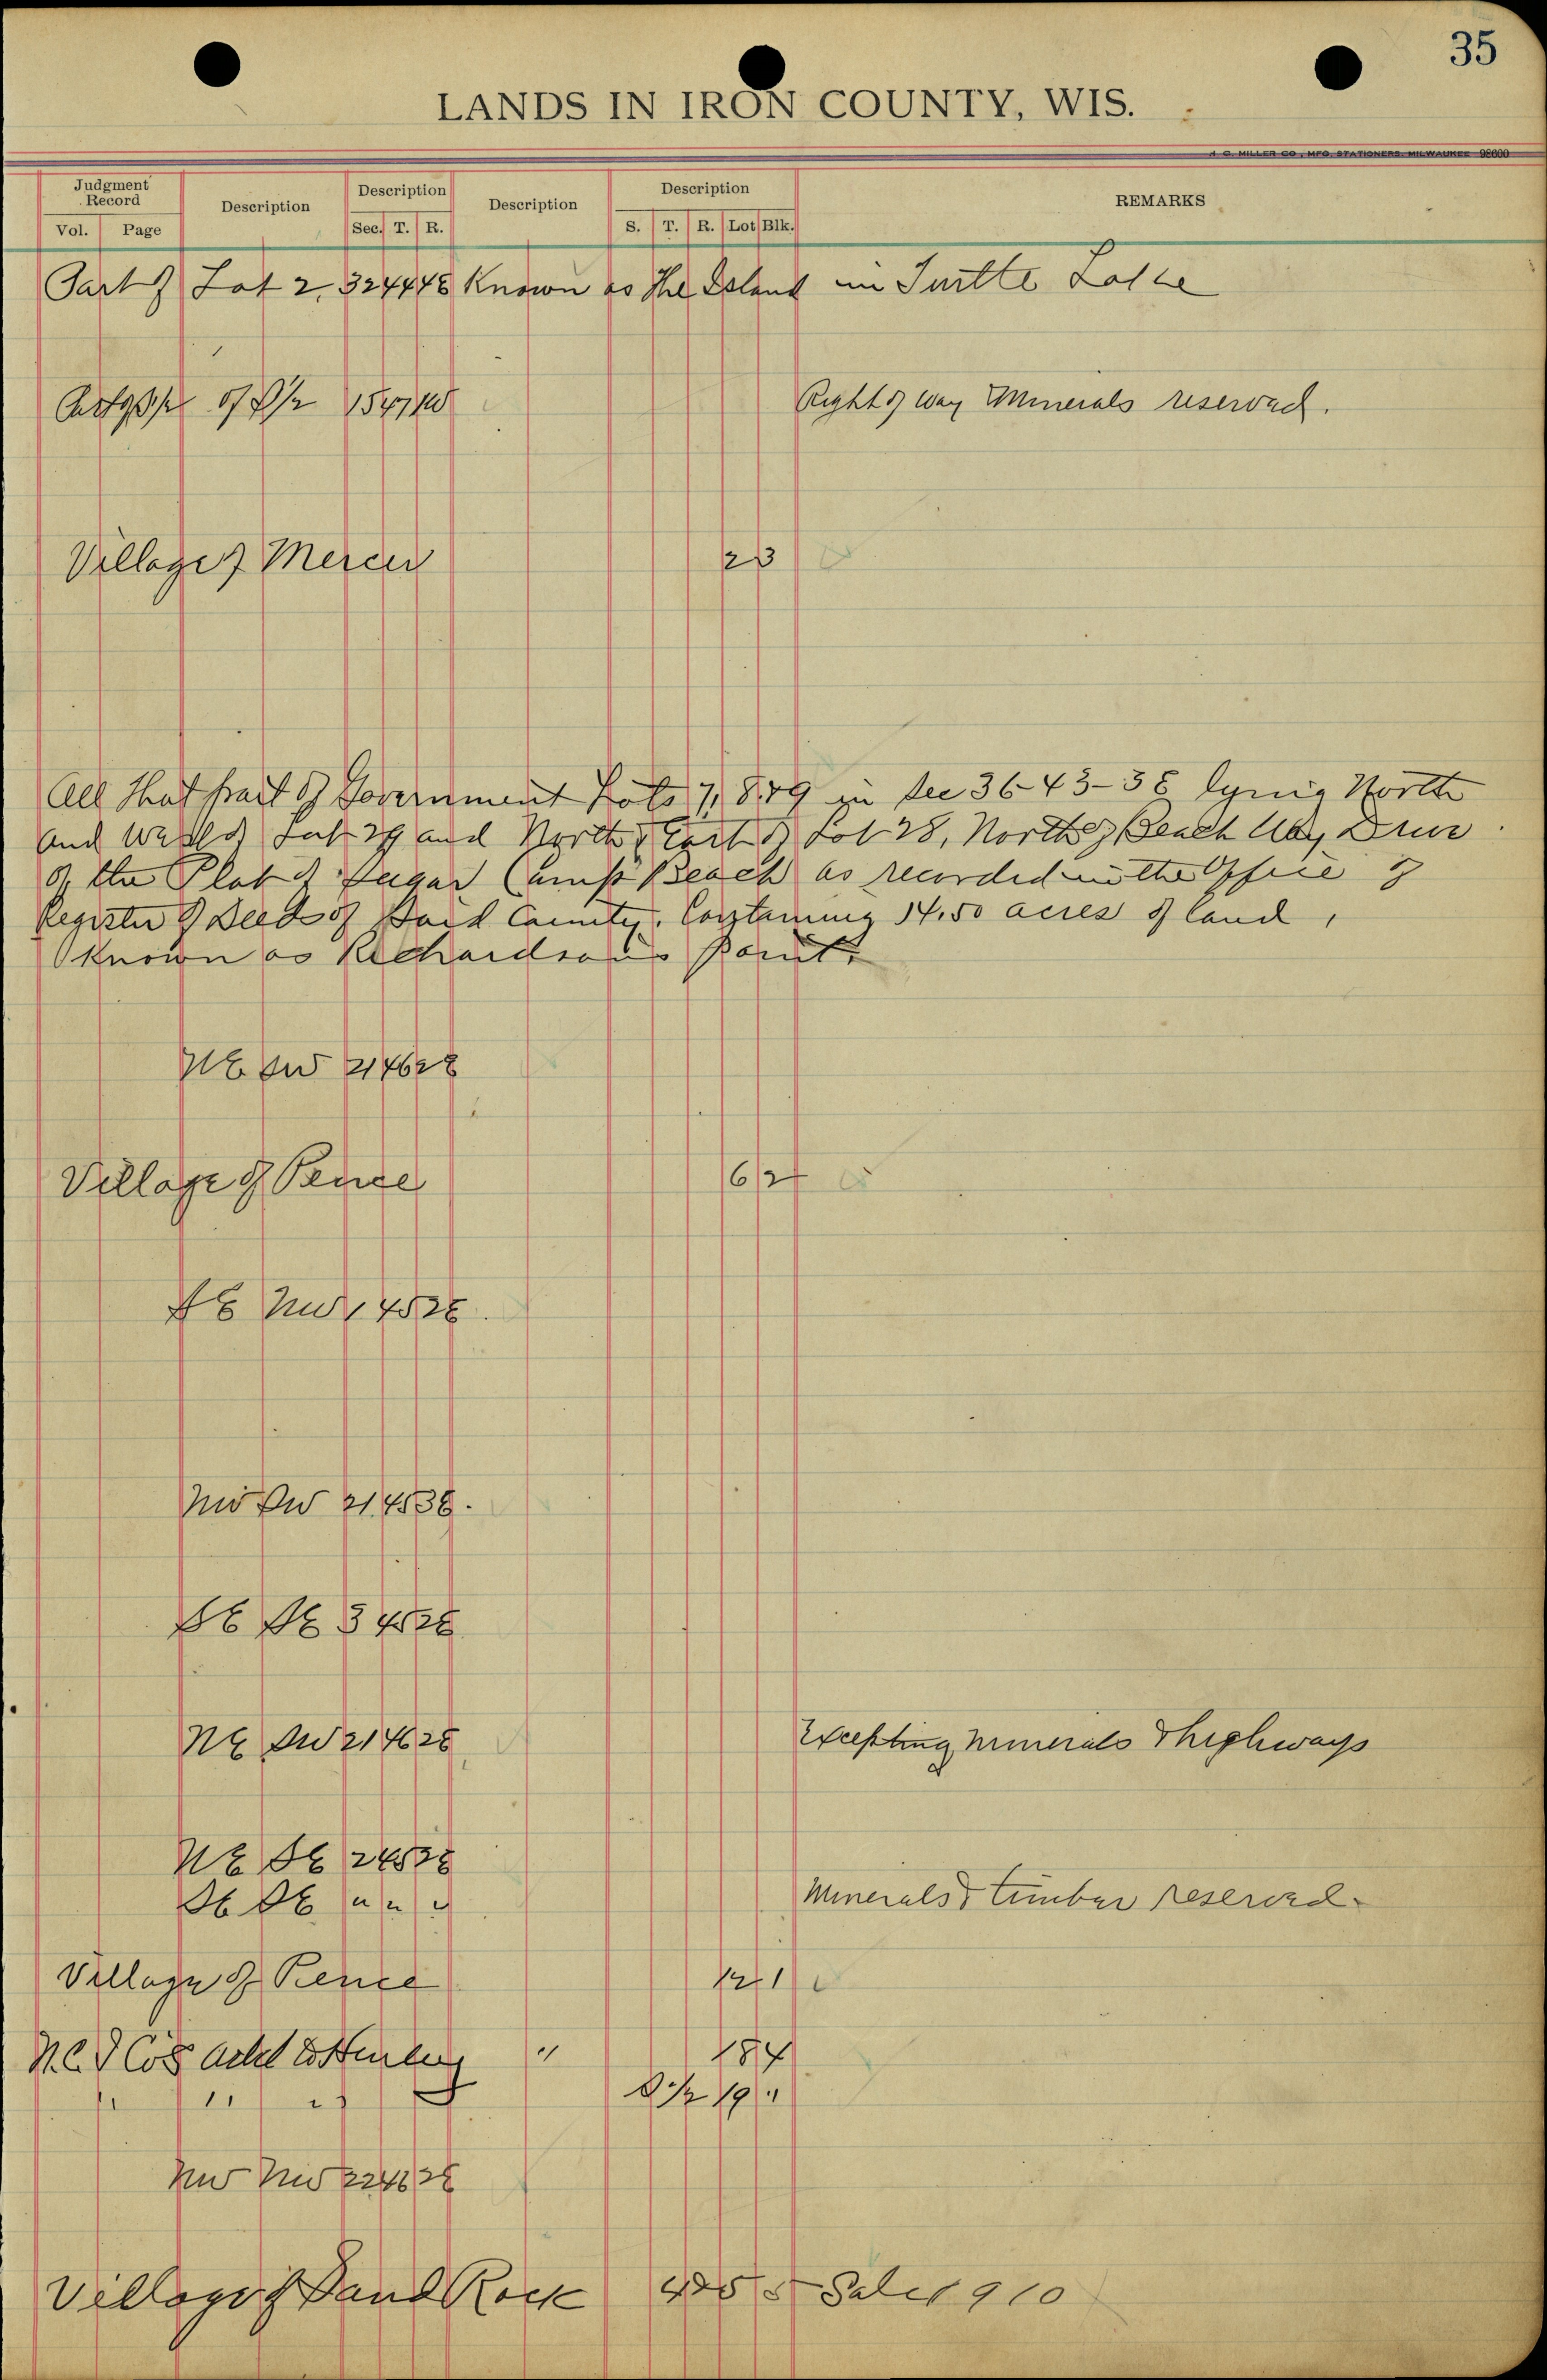 35
LANDS IN IRON COUNTY, WIS.
H. C. MILLER CO., MFG. STATIONERS, MILWAUKEE 98600
Judgment Record Description Description Description Description REMARKS
Vol. Page Sec. T. R. S. T. R. Lot Blk.
Part of Lot 2, 32 44 4E Known as The Island in Turtle Lake
of S/2 15 47 1W Right of way & Minerals reserved.
Village of Mercer 2 3
All that part of Government Lots 7, 8 & 9 in Sec 36-43-3E lying North
and West of Lot 29 and North & East of Lot 28, North of Beach Way Drive
of the Plat of Sugar Camp Beach as recorded in the Office of
Register of Deeds of Said County. Containing 14.50 acres of land,
Known as Richardson's Point.
NE SW 21 46 2E
Village of Pence 6 2
SE NW 1 45 2E.
NW SW 21 45 3E.
SE SE 3 45 2E
NE SW 21 46 2E Excepting Minerals & highways
NE SE 2 45 2E
SE SE " " " Minerals & timber reserved
Village of Pence 12 1
N. L. & Cos Add to Hurley " 18 4
" " " S 1/2 19 "
NW NW 22 46 2E
Village of Sand Rock 4 & 5 5 Sale 1910